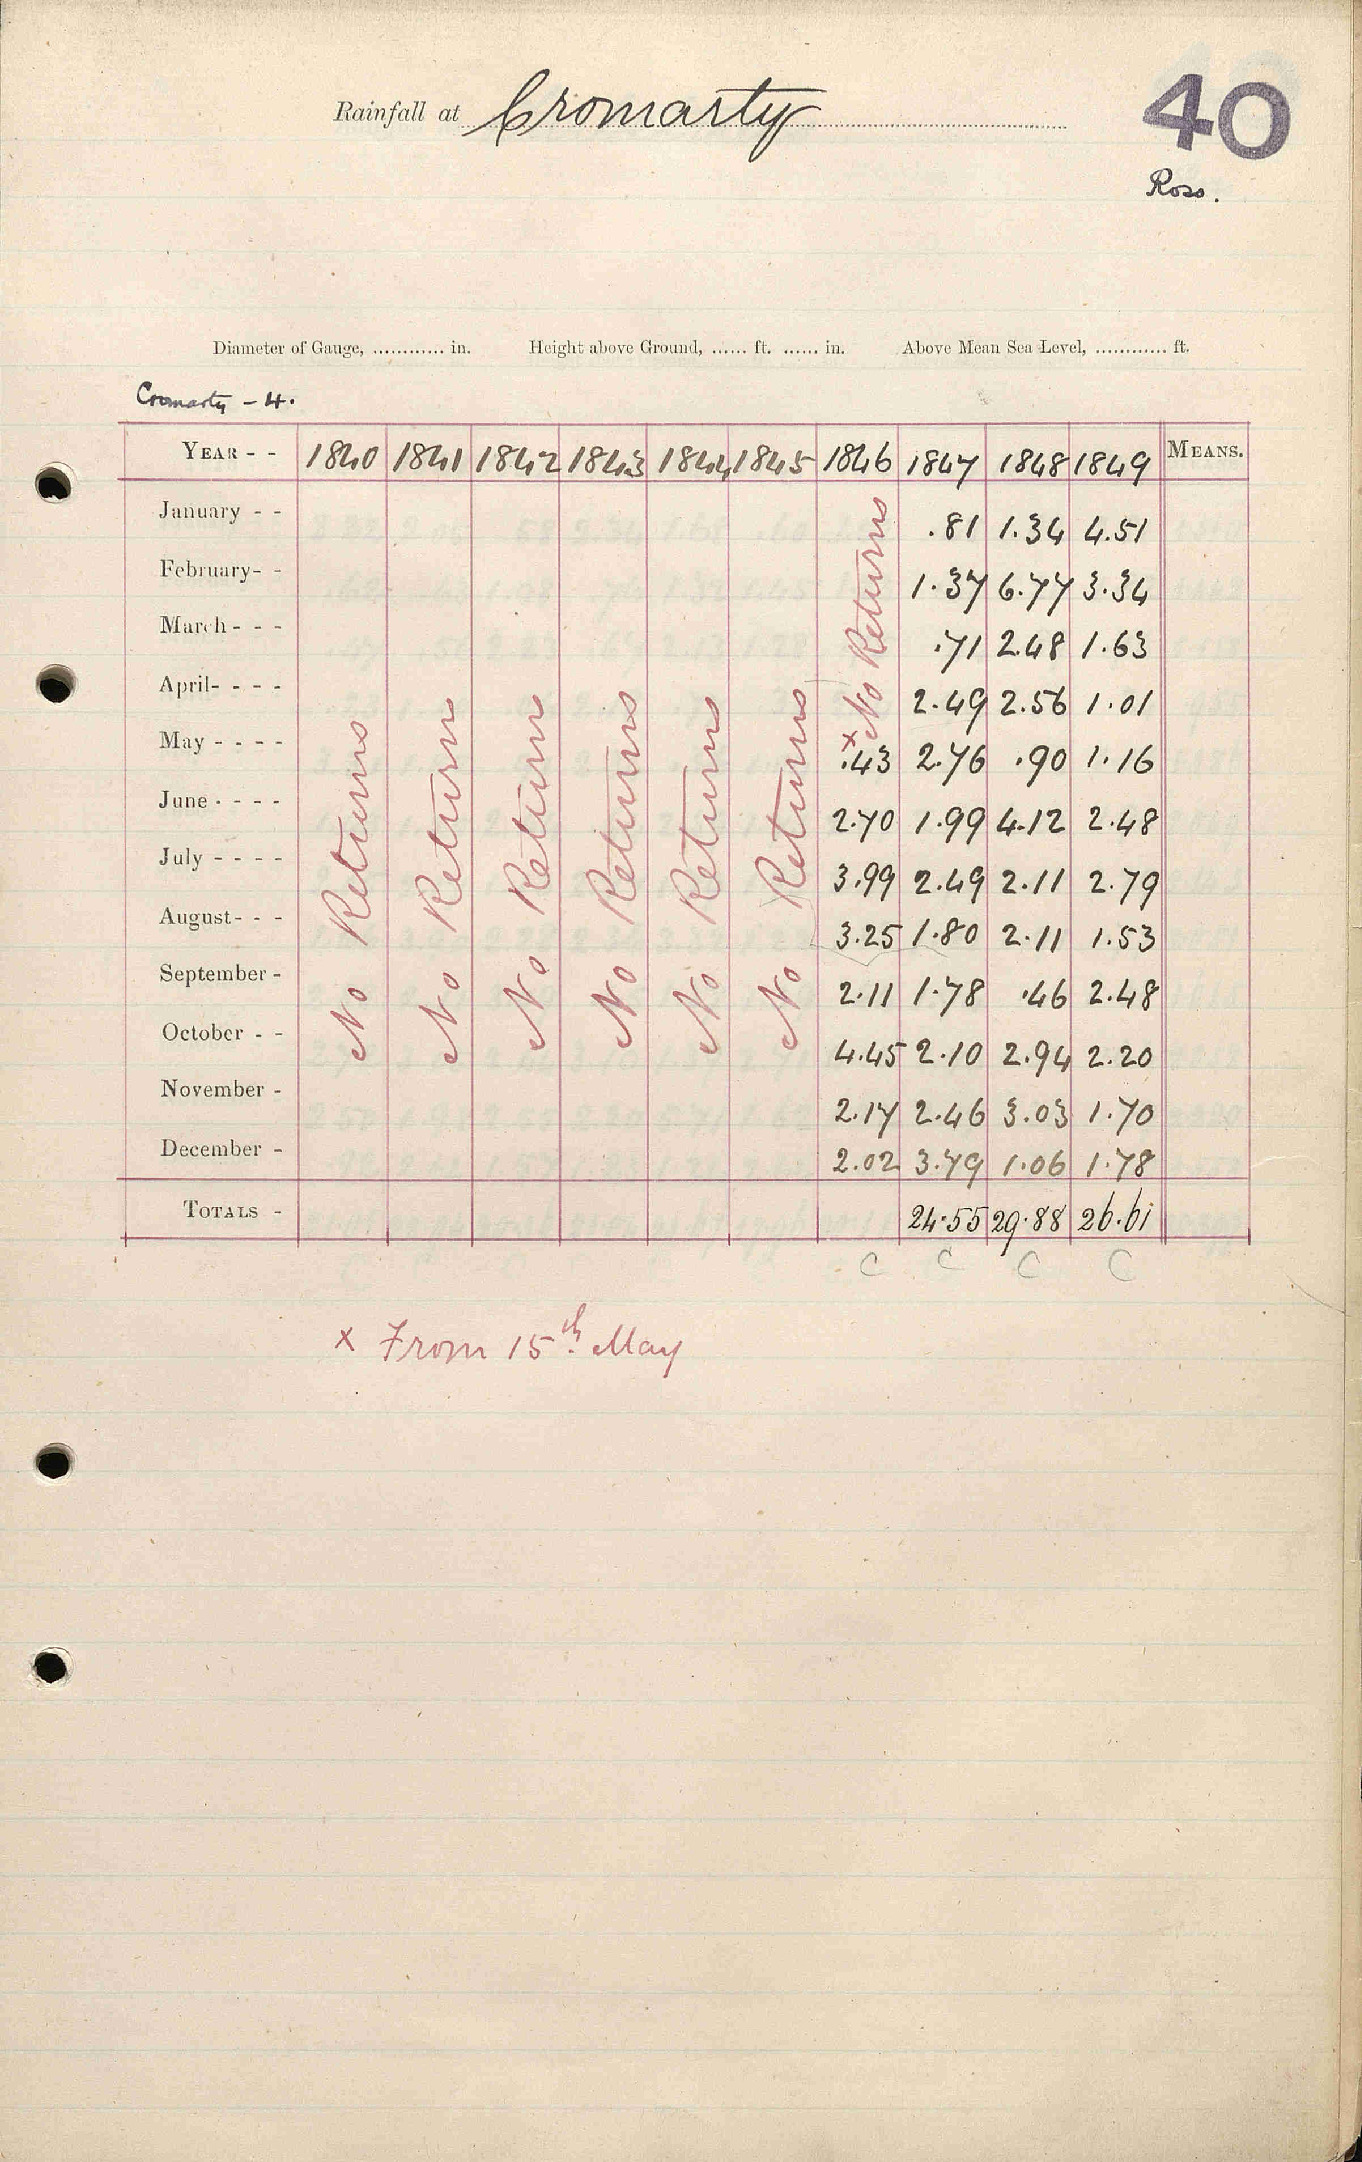 Rainfall at Cromarty
40
Ross.
Diameter of Gauge, ............ in. Height above Ground, ...... ft. ...... in. Above Mean Sea Level, ............ ft.
Cromarty - 4.
YEAR - - 1840 1841 1842 1843 1844 1845 1846 1847 1848 1849 MEANS.
No Returns No Returns No Returns No Returns No Returns No Returns No Returns
January - - .81 1.34 4.51
February - - 1.37 6.77 3.34
March - - - .71 2.48 1.63
April - - - - 2.49 2.56 1.01
May - - - - x .43 2.76 .90 1.16
June - - - - 2.70 1.99 4.12 2.48
July - - - - 3.99 2.49 2.11 2.79
August - - - 3.25 1.80 2.11 1.53
September - 2.11 1.78 .46 2.48
October - - 4.45 2.10 2.94 2.20
November - 2.17 2.46 3.03 1.70
December - 2.02 3.79 1.06 1.78
TOTALS - 24.55 29.88 26.61
C C C C
x From 15th. May